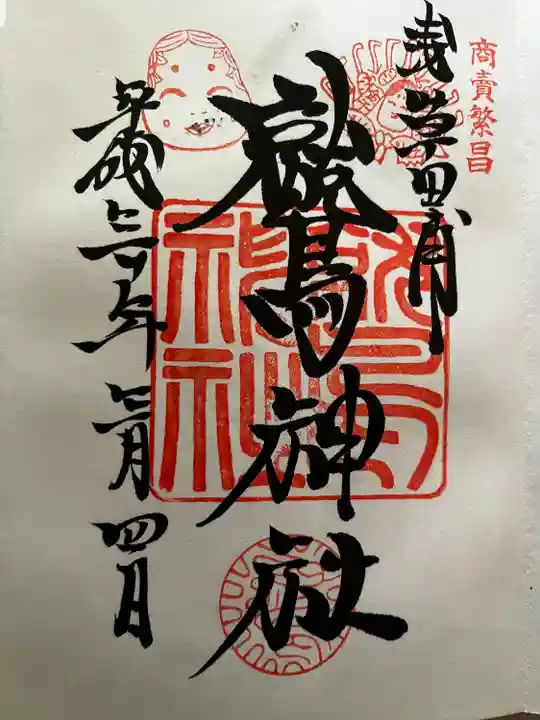 商賣繁昌
浅草田甫
鷲神社
平成三十年三月四日